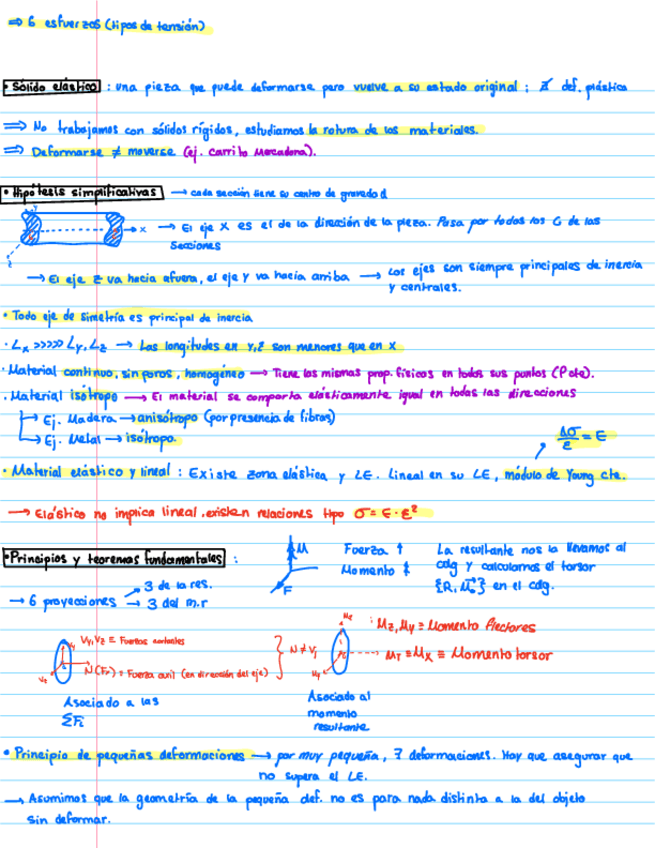 ⇒ 6 esfuerzos (tipos de tensión)
• Sólido elástico : una pieza que puede deformarse pero vuelve a su estado original ; ∄ def. plástica
⇒ No trabajamos con sólidos rígidos, estudiamos la rotura de los materiales.
⇒ Deformarse ≠ moverse (ej. carrito Mercadona).
• Hipótesis simplificativas → cada sección tiene su centro de gravedad
x → El eje X es el de la dirección de la pieza. Pasa por todos los G de las
secciones
z
→ El eje z va hacia afuera, el eje y va hacia arriba → Los ejes son siempre principales de inercia
y centrales.
• Todo eje de simetría es principal de inercia
· Lx >>>>> Ly, Lz → Las longitudes en Y,Z son menores que en X
· Material continuo, sin poros, homogéneo → Tiene las mismas prop. físicos en todos sus puntos (ρ cte).
· Material isótropo → El material se comporta elásticamente igual en todas las direcciones
→ Ej. Madera → anisótropo (por presencia de fibras)
→ Ej. Metal → isótropo.
Δσ/ε = E
· Material elástico y lineal : Existe zona elástica y LE. Lineal en su LE, módulo de Young cte.
→ Elástico no implica lineal, existen relaciones tipo σ = E · ε²
• Principios y teoremas fundamentales :
M
F
Fuerza ↑
Momento ↟
La resultante nos la llevamos al
cdg y calculamos el torsor
{R, M} en el cdg.
→ 6 proyecciones → 3 de la res.
→ 3 del m.r
Vy, Vz ≡ Fuerzas cortantes
N (Fx) : Fuerza axil (en dirección del eje)
N ≠ V
: Mz, My ≡ Momento Flectores
MT ≡ Mx ≡ Momento torsor
Asociado a las
ΣFi
Asociado al
momento
resultante
• Principio de pequeñas deformaciones → por muy pequeña, ∃ deformaciones. Hay que asegurar que
no supera el LE.
→ Asumimos que la geometría de la pequeña def. no es para nada distinta a la del objeto
sin deformar.